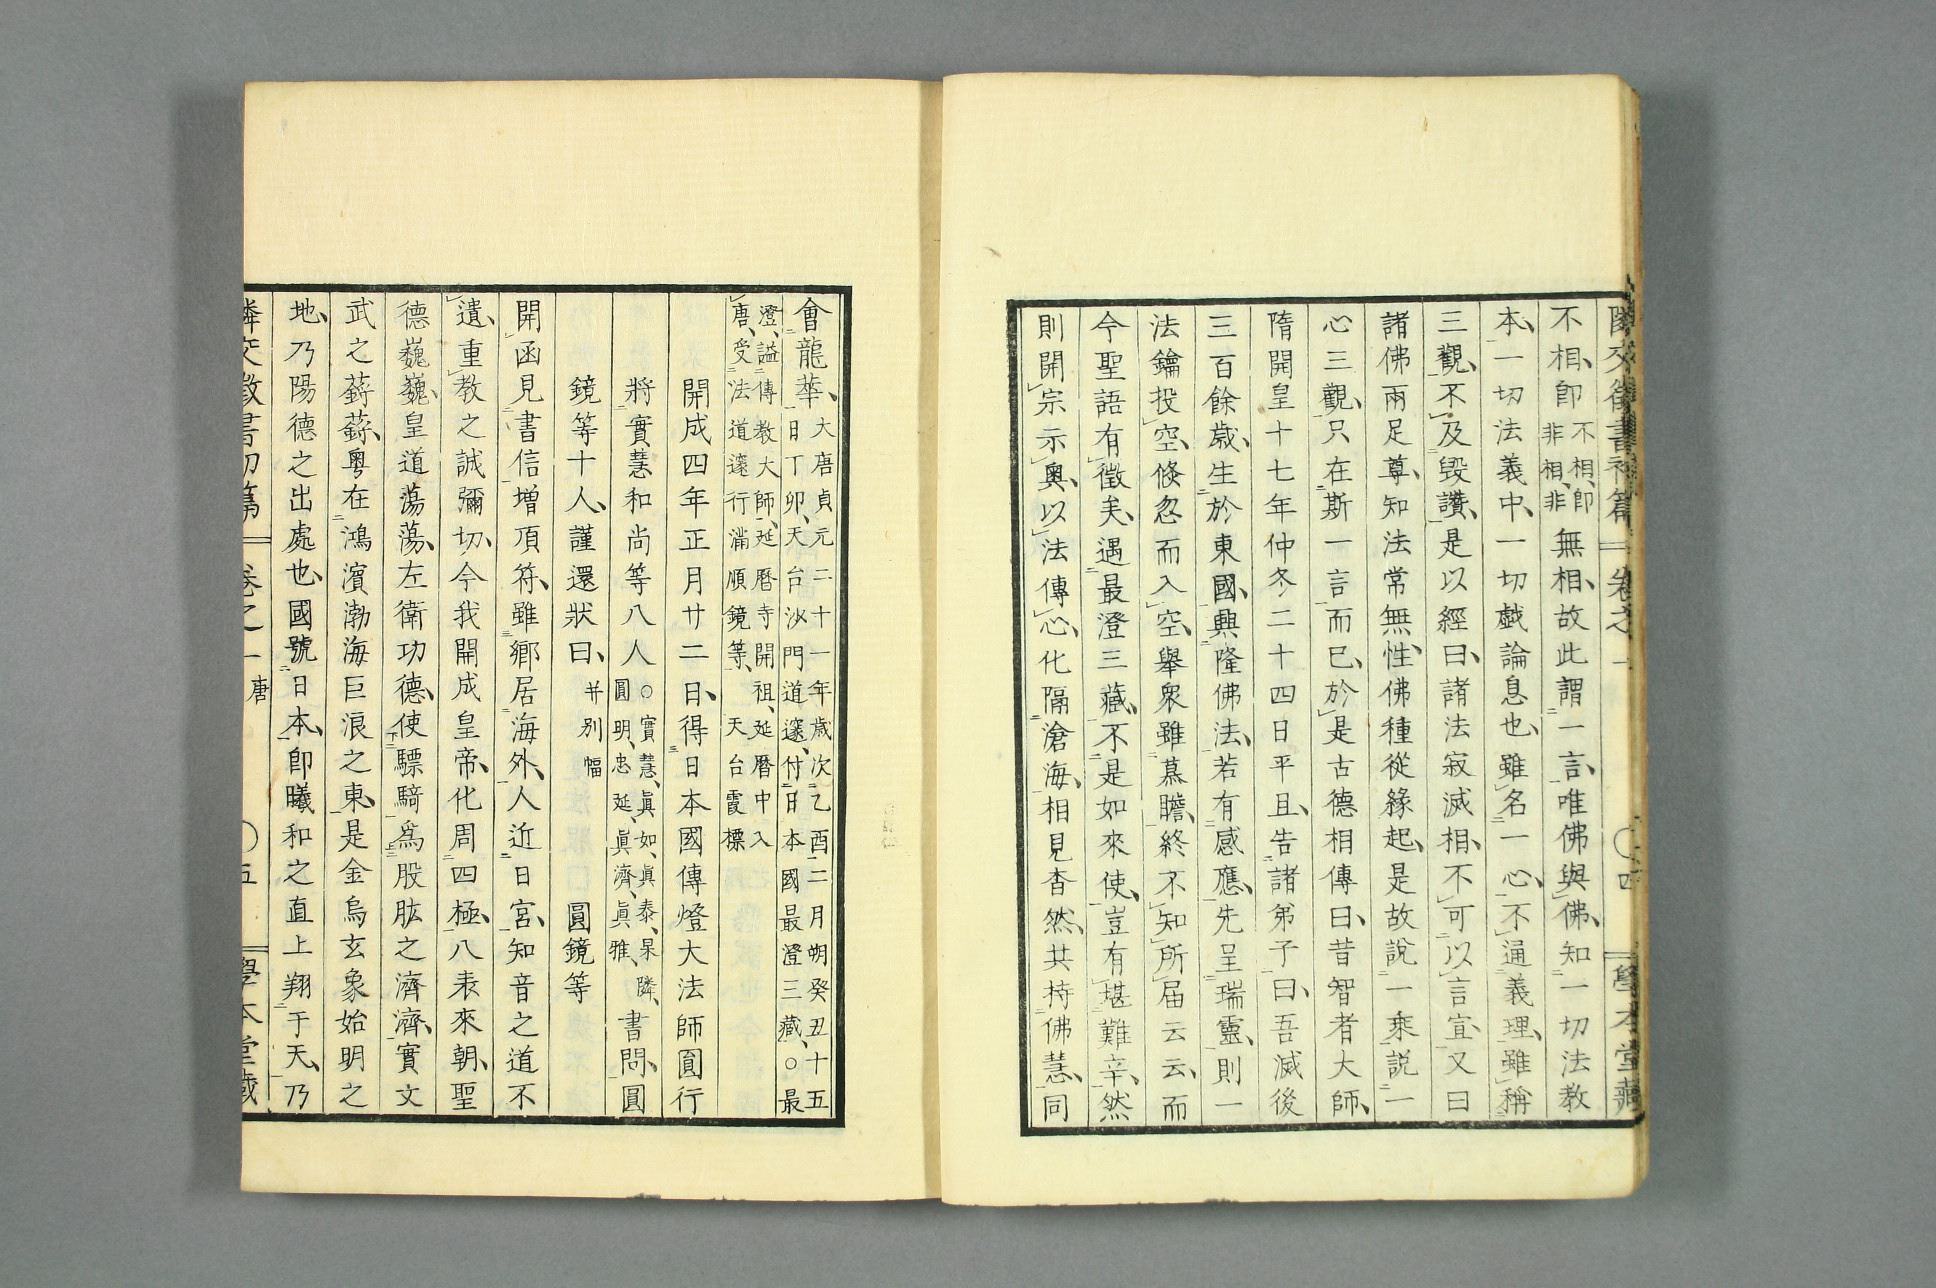 不相、即不相、即非相、非無相、故此謂一言、唯佛與佛、知一切法教
本、一切法義中、一切戲論息也、雖名一心、不通義理、雖稱
三觀、不及毀讚、是以經曰、諸法寂滅相、不可以言宣、又曰
諸佛兩足尊、知法常無性、佛種從緣起、是故說一乘、説一
心三觀、只在斯一言而已、於是古德相傳曰、昔智者大師、
隋開皇十七年仲冬二十四日平旦、告諸弟子曰、吾滅後
三百餘歲、生於東國、興隆佛法、若有感應、先呈瑞靈、則一
法鑰投空、倏忽而入空、舉衆雖慕瞻、終不知所届云云、而
今聖語有徵矣、遇最澄三藏、不是如來使、豈有堪難辛、然
則開宗示奧、以法傳心、化隔滄海、相見杳然、共持佛慧、同
會龍華、大唐貞元二十一年歲次乙酉二月朔癸丑十五
日丁卯、天台沙門道邃、付日本國最澄三藏、○最
澄、謚傳教大師、延曆寺開祖、延曆中入
唐、受法道邃行滿順鏡等、天台霞標
開成四年正月廿二日、得日本國傳燈大法師圓行
將實慧和尚等八人○實慧、眞如、眞泰、杲隣、圓明、忠延、眞濟、眞雅、書問、圓
鏡等十人、謹還狀曰、幷别幅 圓鏡等
開函見書信、增頂荷、雖鄉居海外、人近日宮、知音之道不
遺、重教之誠彌切、今我開成皇帝、化周四極、八表來朝、聖
德巍巍、皇道蕩蕩、左衛功德使驃騎、爲股肱之濟濟、實文
武之蔣蔣、粵在鴻濱渤海巨浪之東、是金烏玄象始明之
地、乃陽德之出處也、國號日本、即曦和之直上翔于天、乃
鄰交徵書初篇 卷之一 唐 ○五 學本堂藏